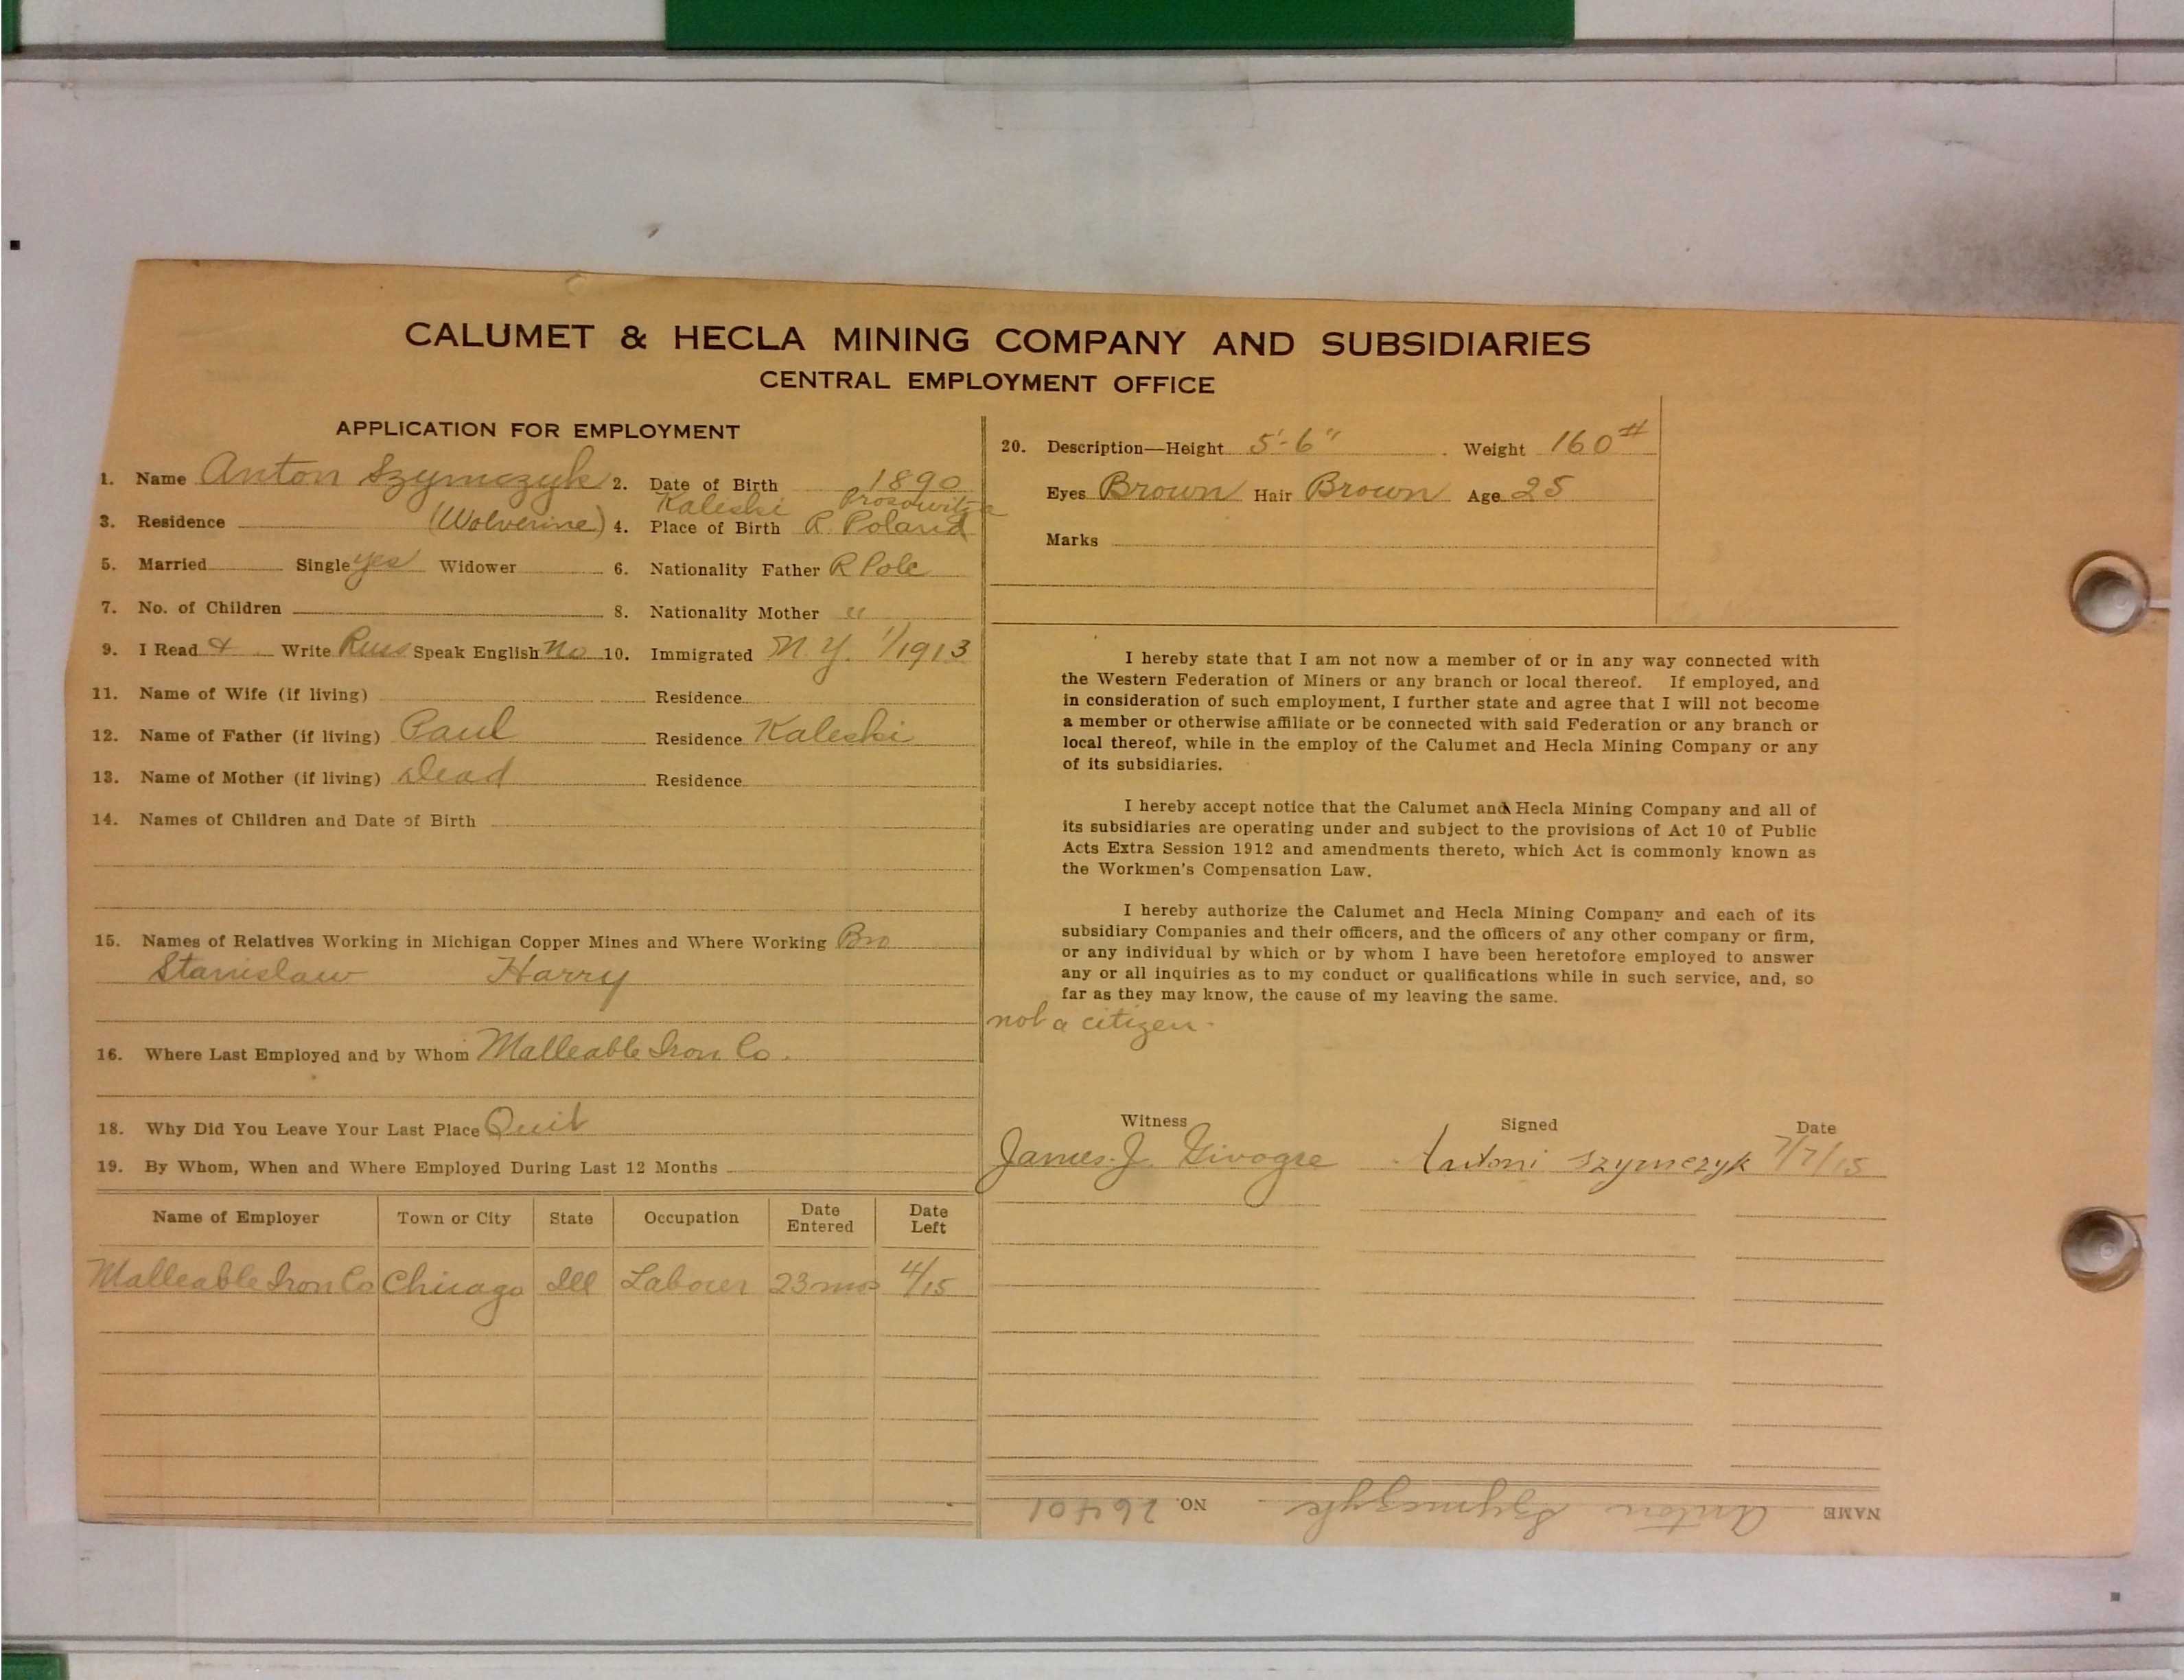 CALUMET & HECLA MINING COMPANY AND SUBSIDIARIES
CENTRAL EMPLOYMENT OFFICE
APPLICATION FOR EMPLOYMENT
1. Name Anton Szymczyk 2. Date of Birth 1890
Kaleski
3. Residence (Wolverine) 4. Place of Birth R. Poland
5. Married Single yes Widower 6. Nationality Father R Pole
7. No. of Children 8. Nationality Mother "
9. I Read & Write Russ Speak English no 10. Immigrated N. Y. 1/1913
11. Name of Wife (if living) Residence
12. Name of Father (if living) Paul Residence Kaleski
13. Name of Mother (if living) Dead Residence
14. Names of Children and Date of Birth
15. Names of Relatives Working in Michigan Copper Mines and Where Working Bro
Stanislaw Harry
16. Where Last Employed and by Whom Malleable Iron Co.
18. Why Did You Leave Your Last Place Quit
19. By Whom, When and Where Employed During Last 12 Months
Name of Employer Town or City State Occupation Date Entered Date Left
Malleable Iron Co Chicago Ill Labourer 23 mos 4/15
20. Description—Height 5'-6" Weight 160#
Eyes Brown Hair Brown Age 25
Marks
I hereby state that I am not now a member of or in any way connected with
the Western Federation of Miners or any branch or local thereof. If employed, and
in consideration of such employment, I further state and agree that I will not become
a member or otherwise affiliate or be connected with said Federation or any branch or
local thereof, while in the employ of the Calumet and Hecla Mining Company or any
of its subsidiaries.
I hereby accept notice that the Calumet and Hecla Mining Company and all of
its subsidiaries are operating under and subject to the provisions of Act 10 of Public
Acts Extra Session 1912 and amendments thereto, which Act is commonly known as
the Workmen's Compensation Law.
I hereby authorize the Calumet and Hecla Mining Company and each of its
subsidiary Companies and their officers, and the officers of any other company or firm,
or any individual by which or by whom I have been heretofore employed to answer
any or all inquiries as to my conduct or qualifications while in such service, and, so
far as they may know, the cause of my leaving the same.
not a citizen.
Witness Signed Date
James. J. Antoni Szymczyk 7/7/15
NAME Anton Szymczyk NO. 26401